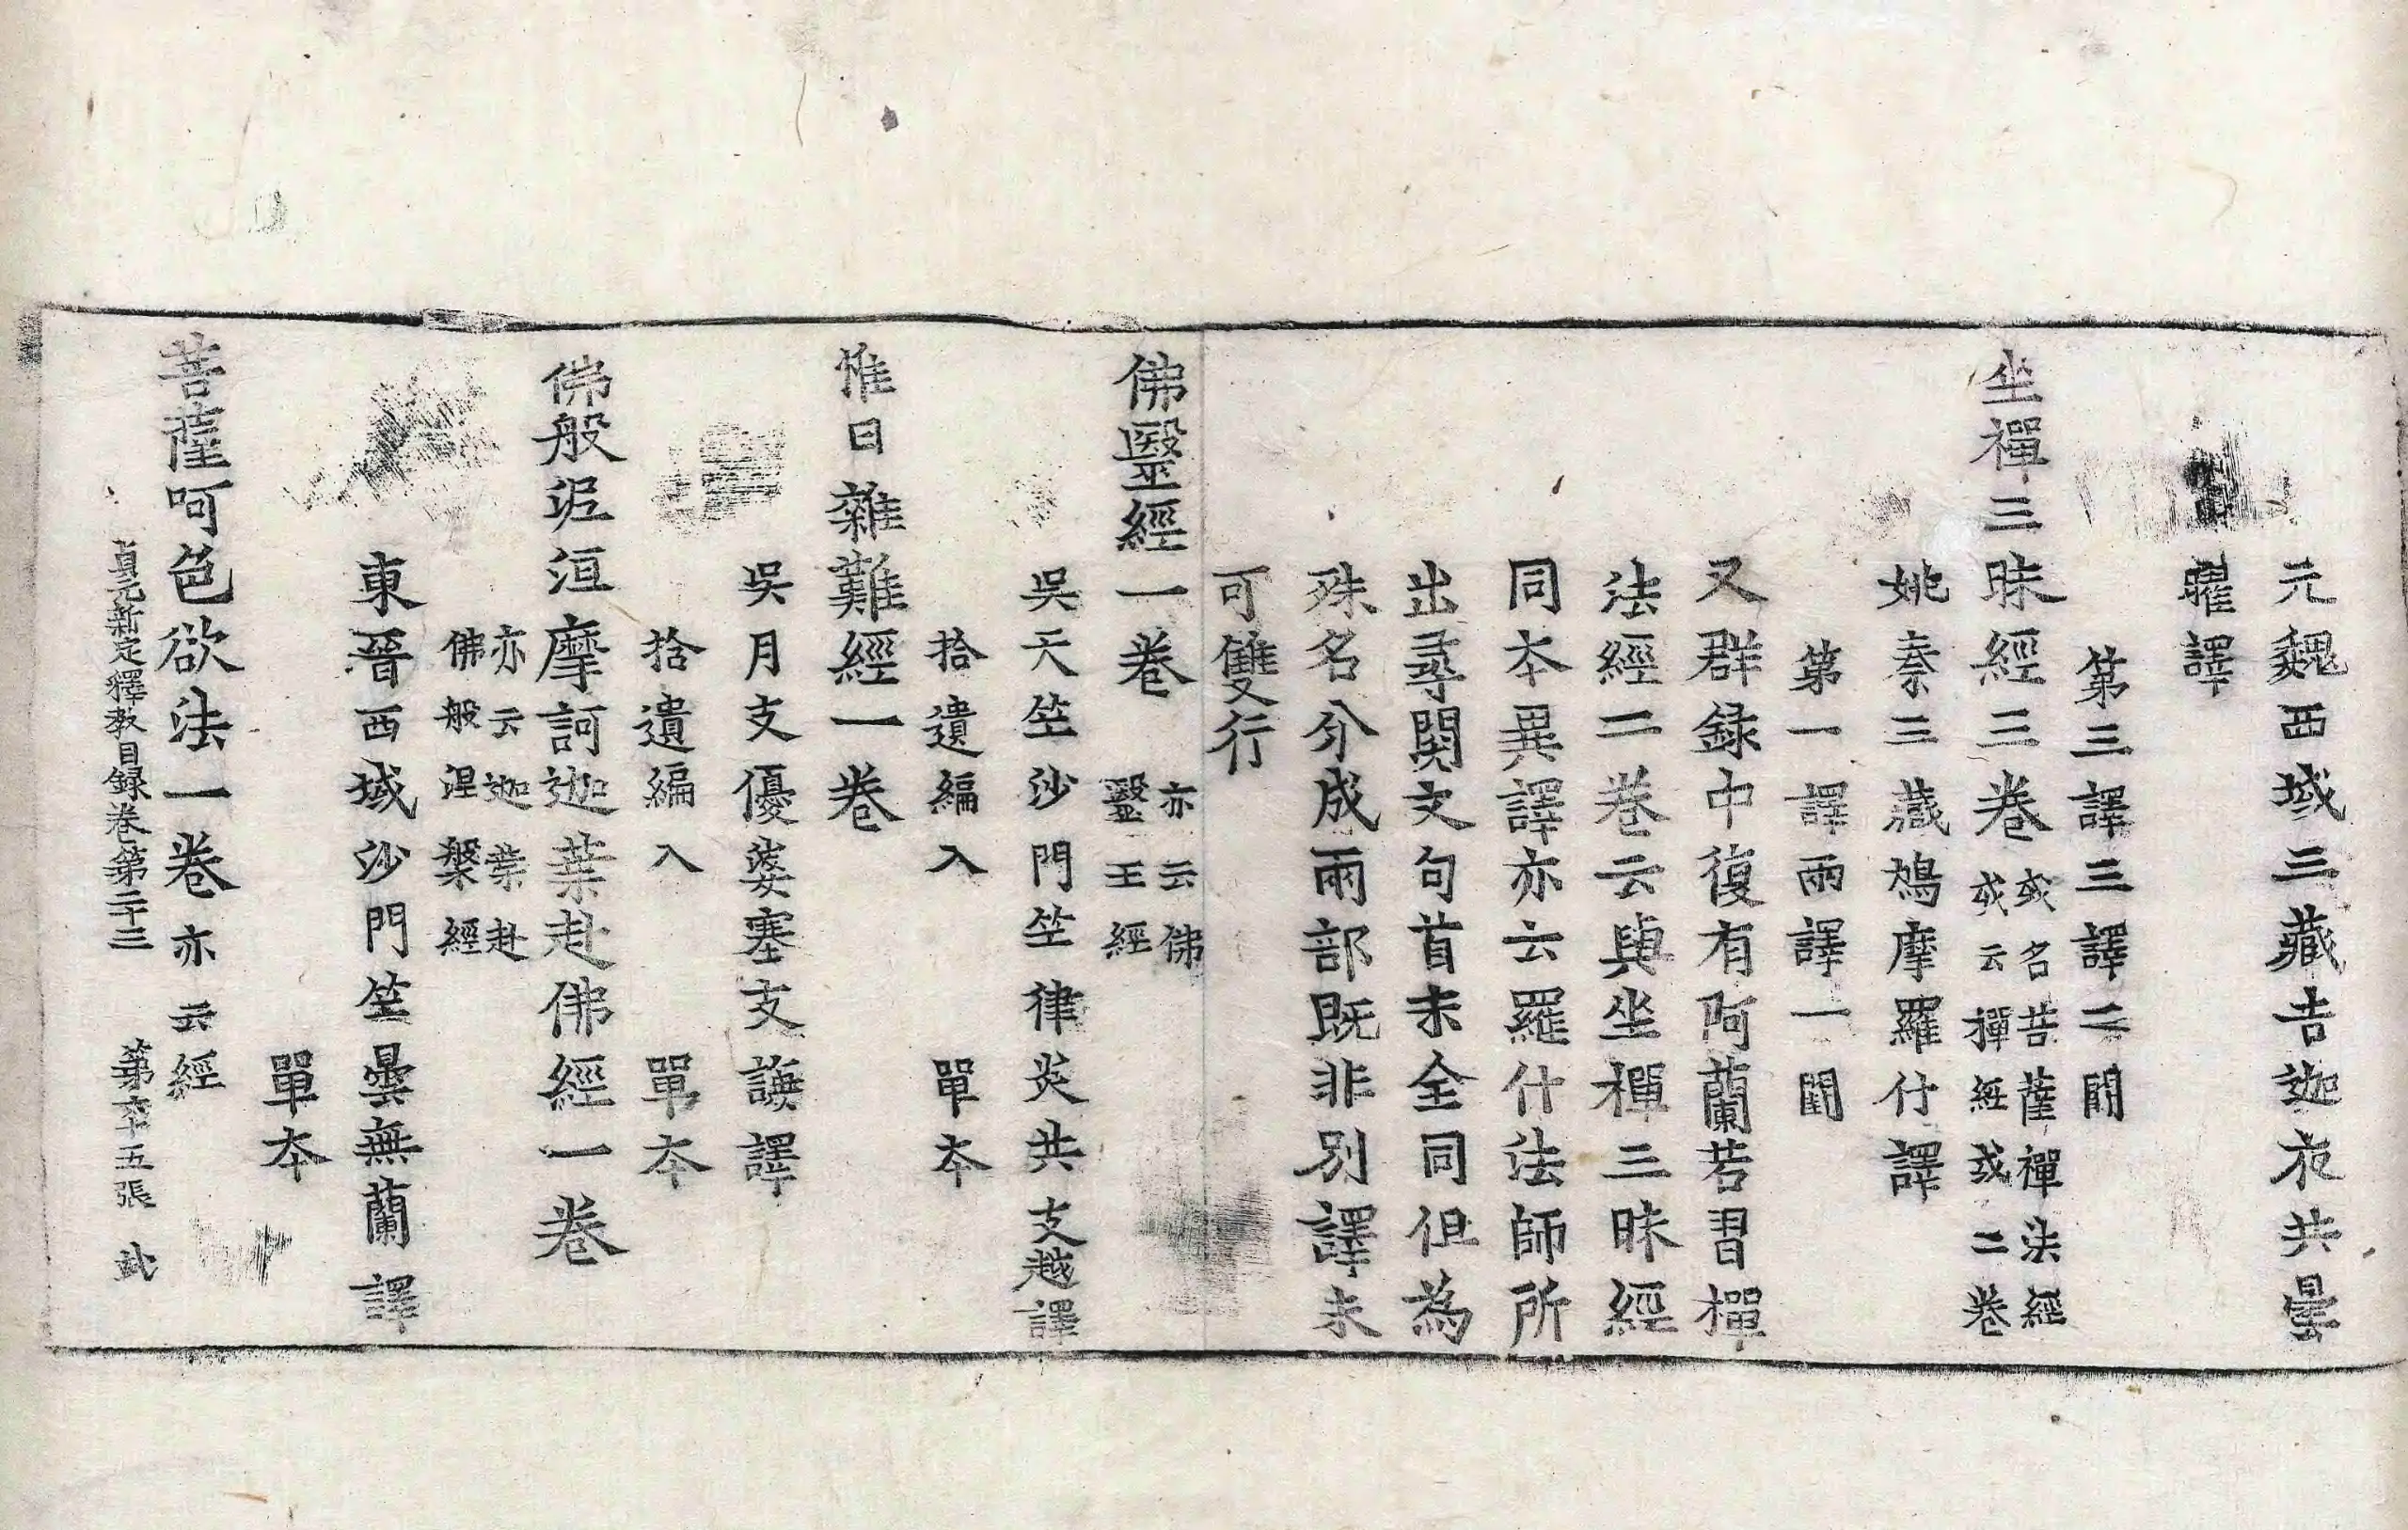 元魏西域三藏吉迦夜共曇
曜譯
第三譯三譯二闕
坐禪三昧經三卷
或名菩薩禪法經
或云禪經或二卷
姚秦三藏鳩摩羅什譯
第一譯兩譯一闕
又群録中復有阿蘭若習禪
法經二卷云與坐禪三昧經
同本異譯亦云羅什法師所
出尋閱文句首末全同但為
殊名分成兩部既非別譯未
可雙行
佛毉經一卷
亦云佛
毉王經
吳天竺沙門竺律炎共支越譯
拾遺編入 單本
惟日雜難經一卷
吳月支優婆塞支謙譯
拾遺編入 單本
佛般泥洹摩訶迦葉赴佛經一卷
亦云迦葉赴
佛般涅槃經
東晉西域沙門竺曇無蘭譯
單本
菩薩呵色欲法一卷亦云經
貞元新定釋教目録卷第二十三 第六十五張